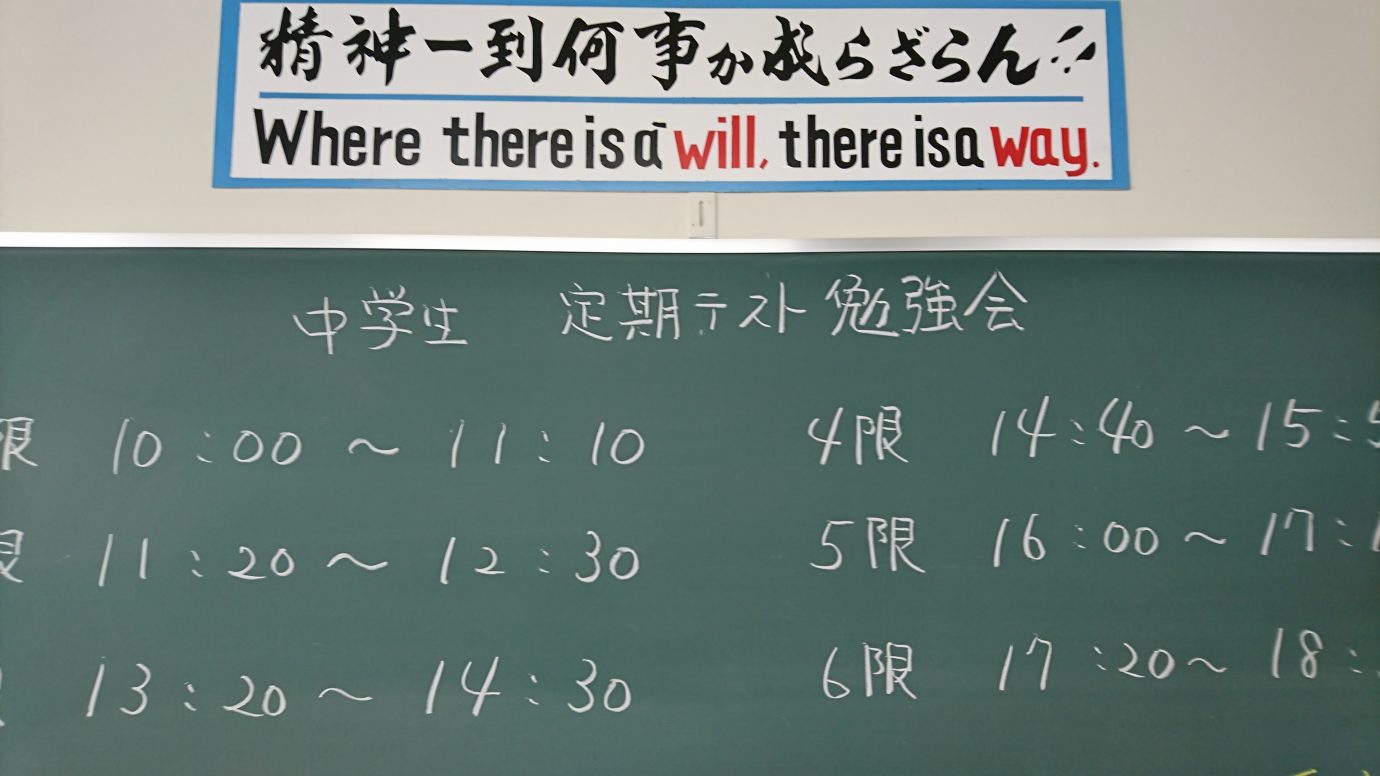 精神一到何事か成らざらん!!
Where there is a will, there is a way.
中学生 定期テスト勉強会
限 10:00～11:10
限 11:20～12:30
13:20～14:30
4限 14:40～15:5
5限 16:00～17:1
6限 17:20～18: